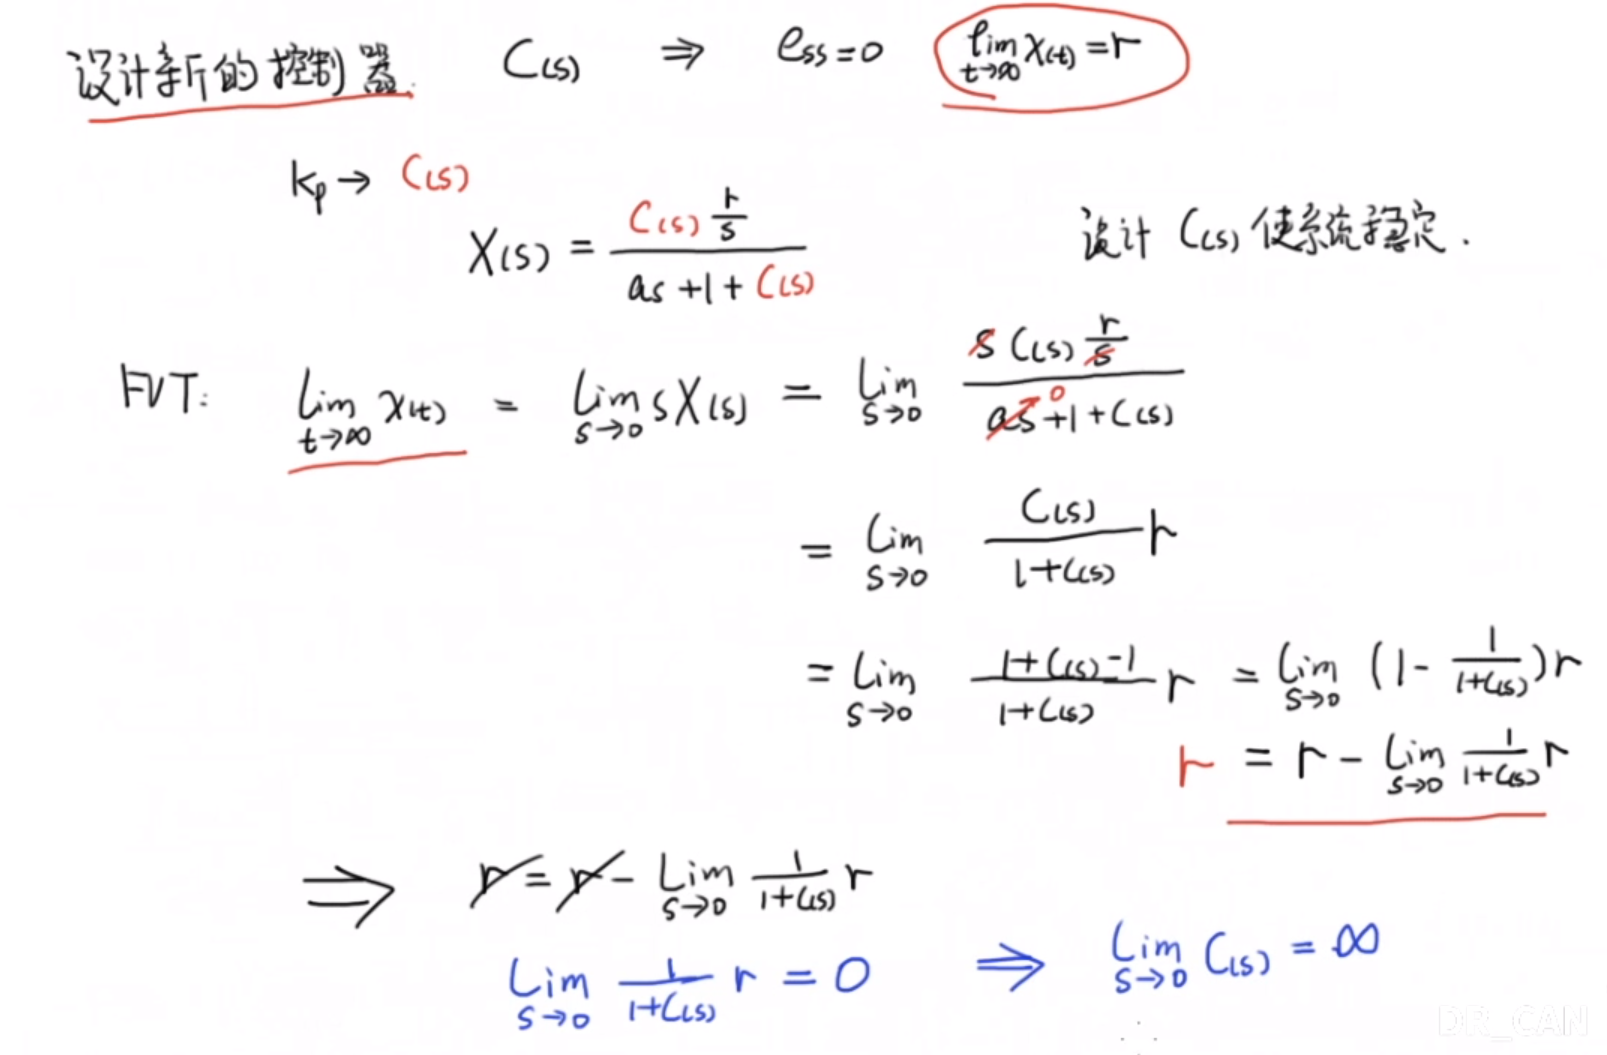 设计新的控制器. C(s) ⇒ ess=0 lim t→∞ x(t)=r
kp → C(s)
X(s) = C(s) r/s / as+1+C(s) 设计 C(s) 使系统稳定.
FVT: Lim t→∞ x(t) = Lim s→0 sX(s) = Lim s→0 s C(s) r/s / as 0 +1+C(s)
= Lim s→0 C(s) / 1+C(s) r
= Lim s→0 1+C(s)-1 / 1+C(s) r = Lim s→0 (1- 1/1+C(s))r
r = r - Lim s→0 1/1+C(s) r
⇒ r = r - Lim s→0 1/1+C(s) r
Lim s→0 1/1+C(s) r = 0 ⇒ Lim s→0 C(s) = ∞
DR_CAN